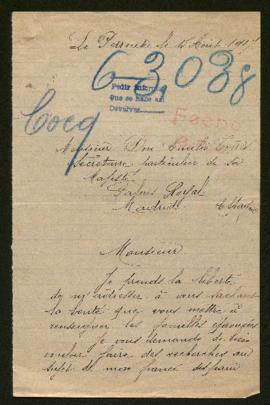 Le Perreux le 15 Août 1917
63,088
Pedir
que se hace así
Devolver
Cocq
Monsieur Don Emilio
Secrétaire particulier de Sa
Majesté
Palais Royal
Madrid
Monsieur
Je prends la liberté
de m'adresser à vous sachant
la bonté que vous mettez à
renseigner les familles éprouvées
je vous demande de bien
vouloir faire des recherches au
sujet de mon fiancé disparu